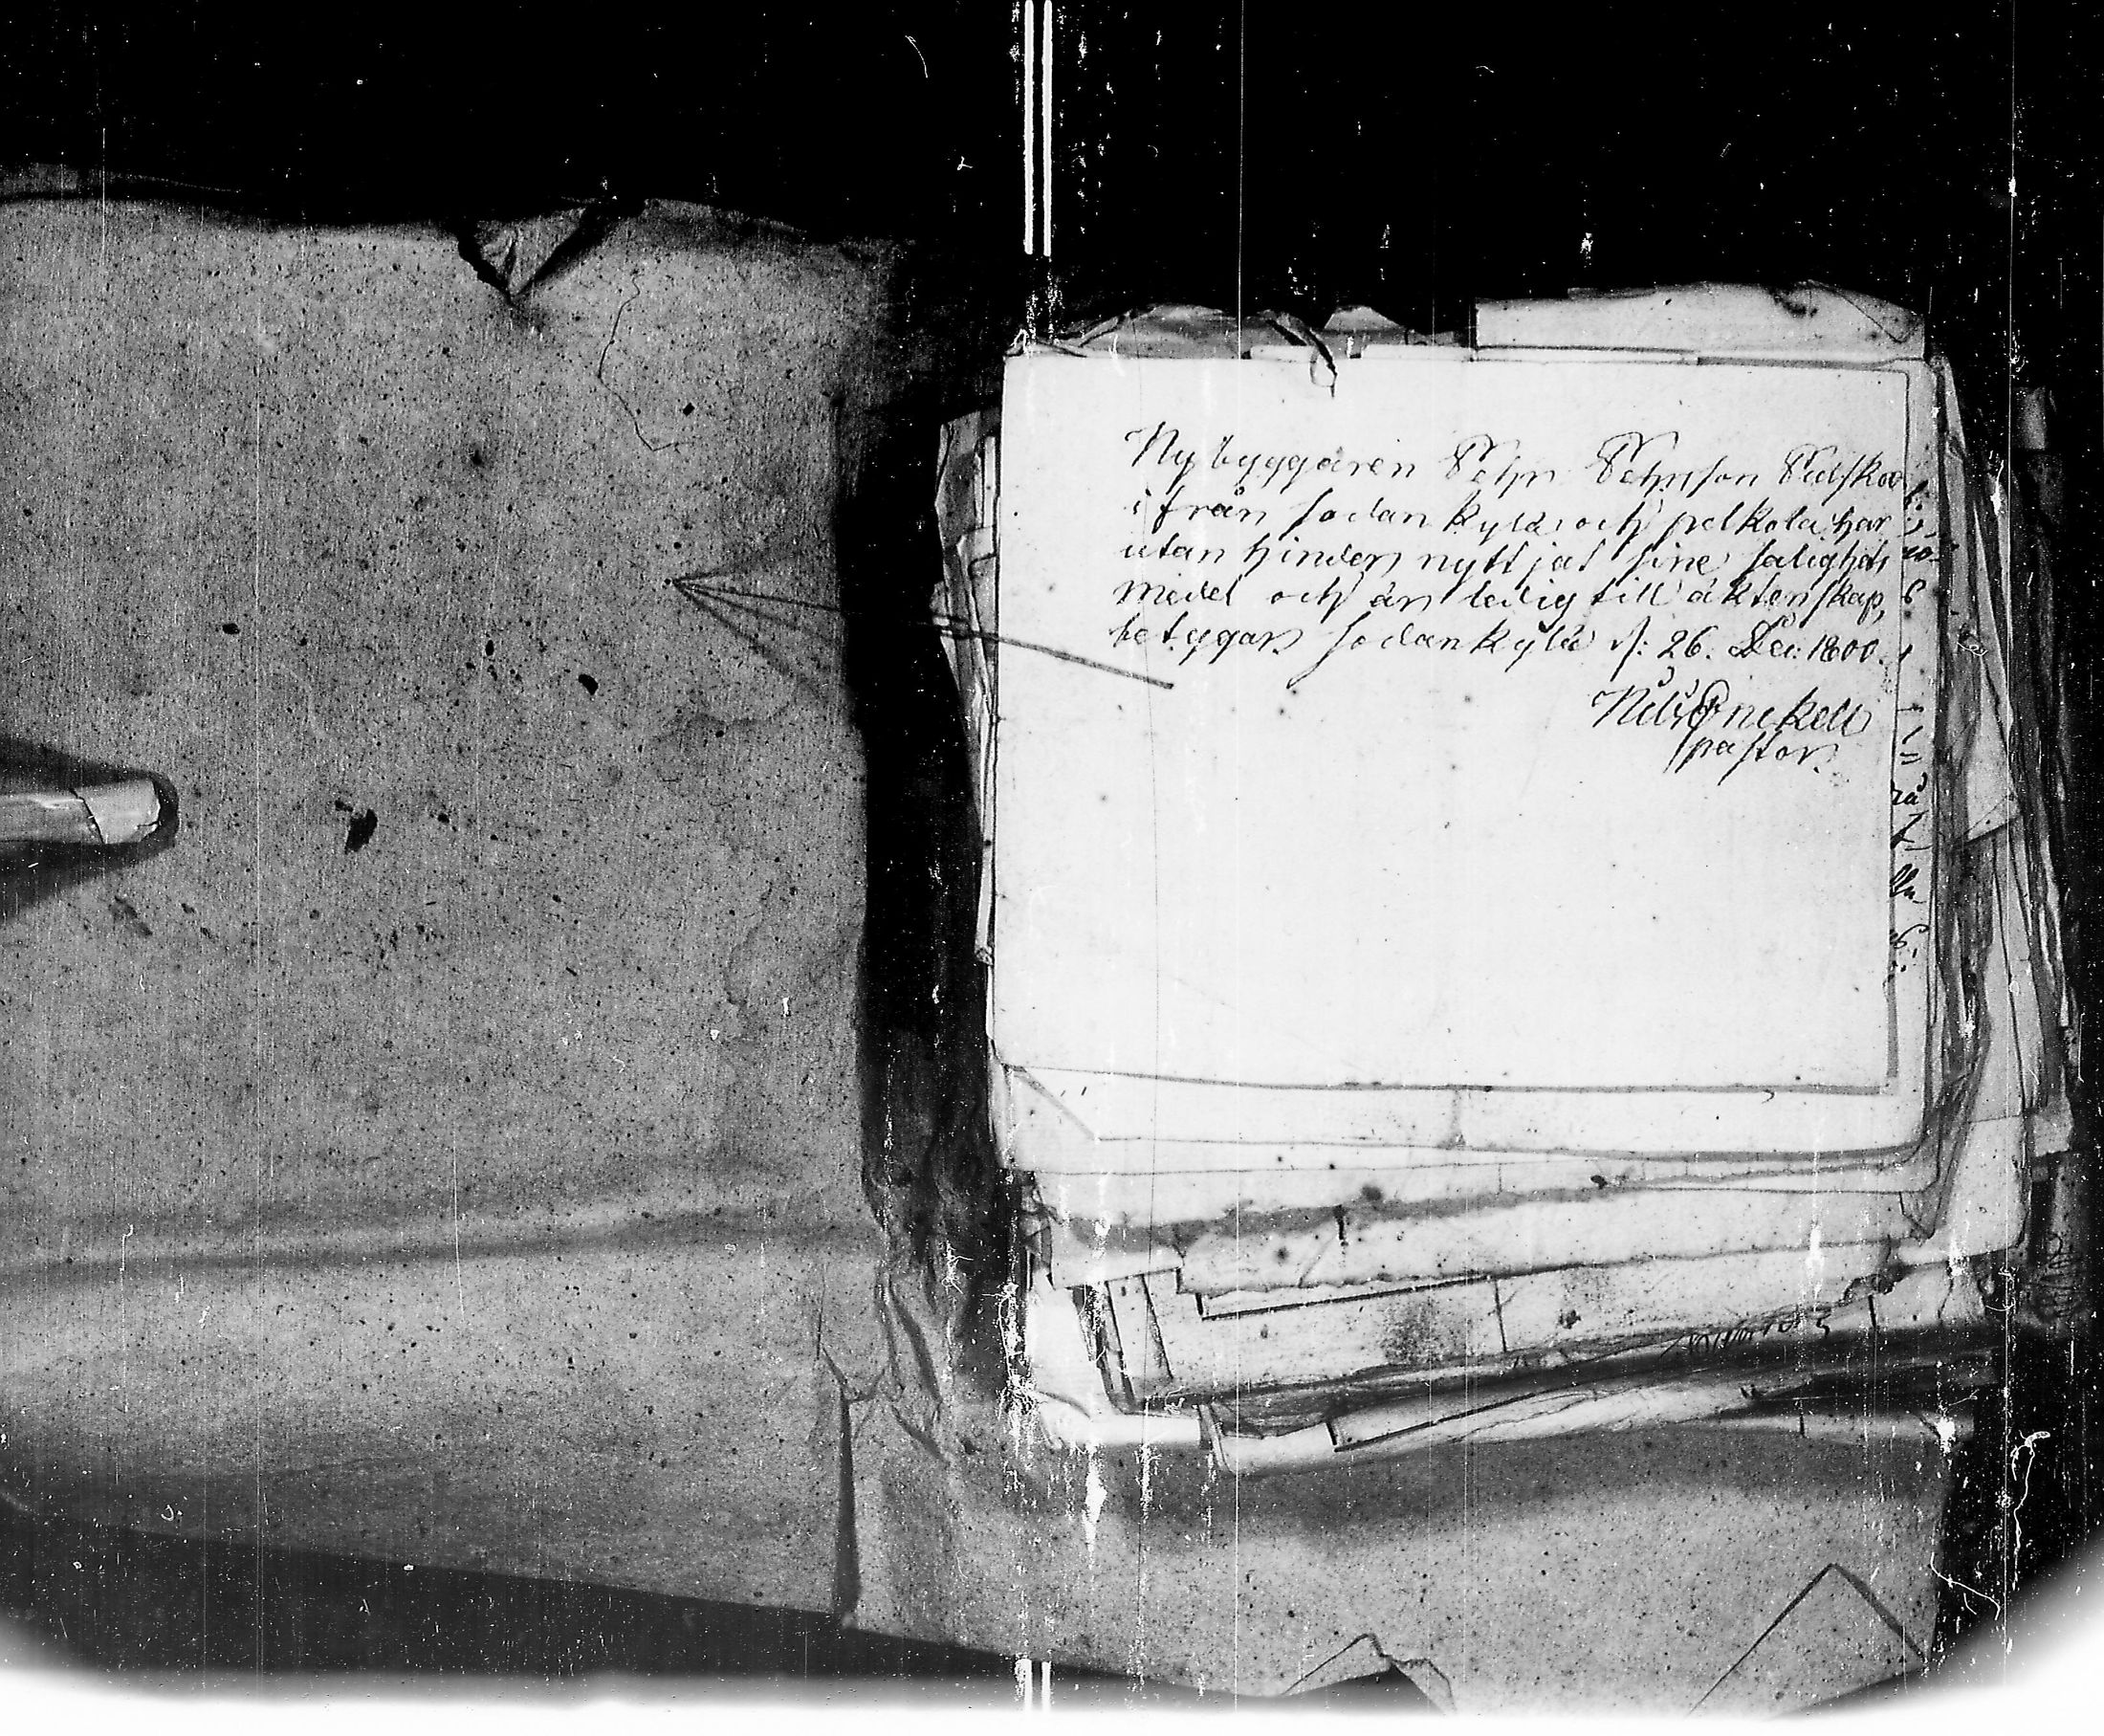 Nybyggaren Pehr Pehrson
ifrån Sodankylä och pelkola har
utan hinder nyttjat sine salighets
medel och är ledig till äktenskap,
betygar Sodankylä d: 26. Dec: 1800.
Nils
pastor.